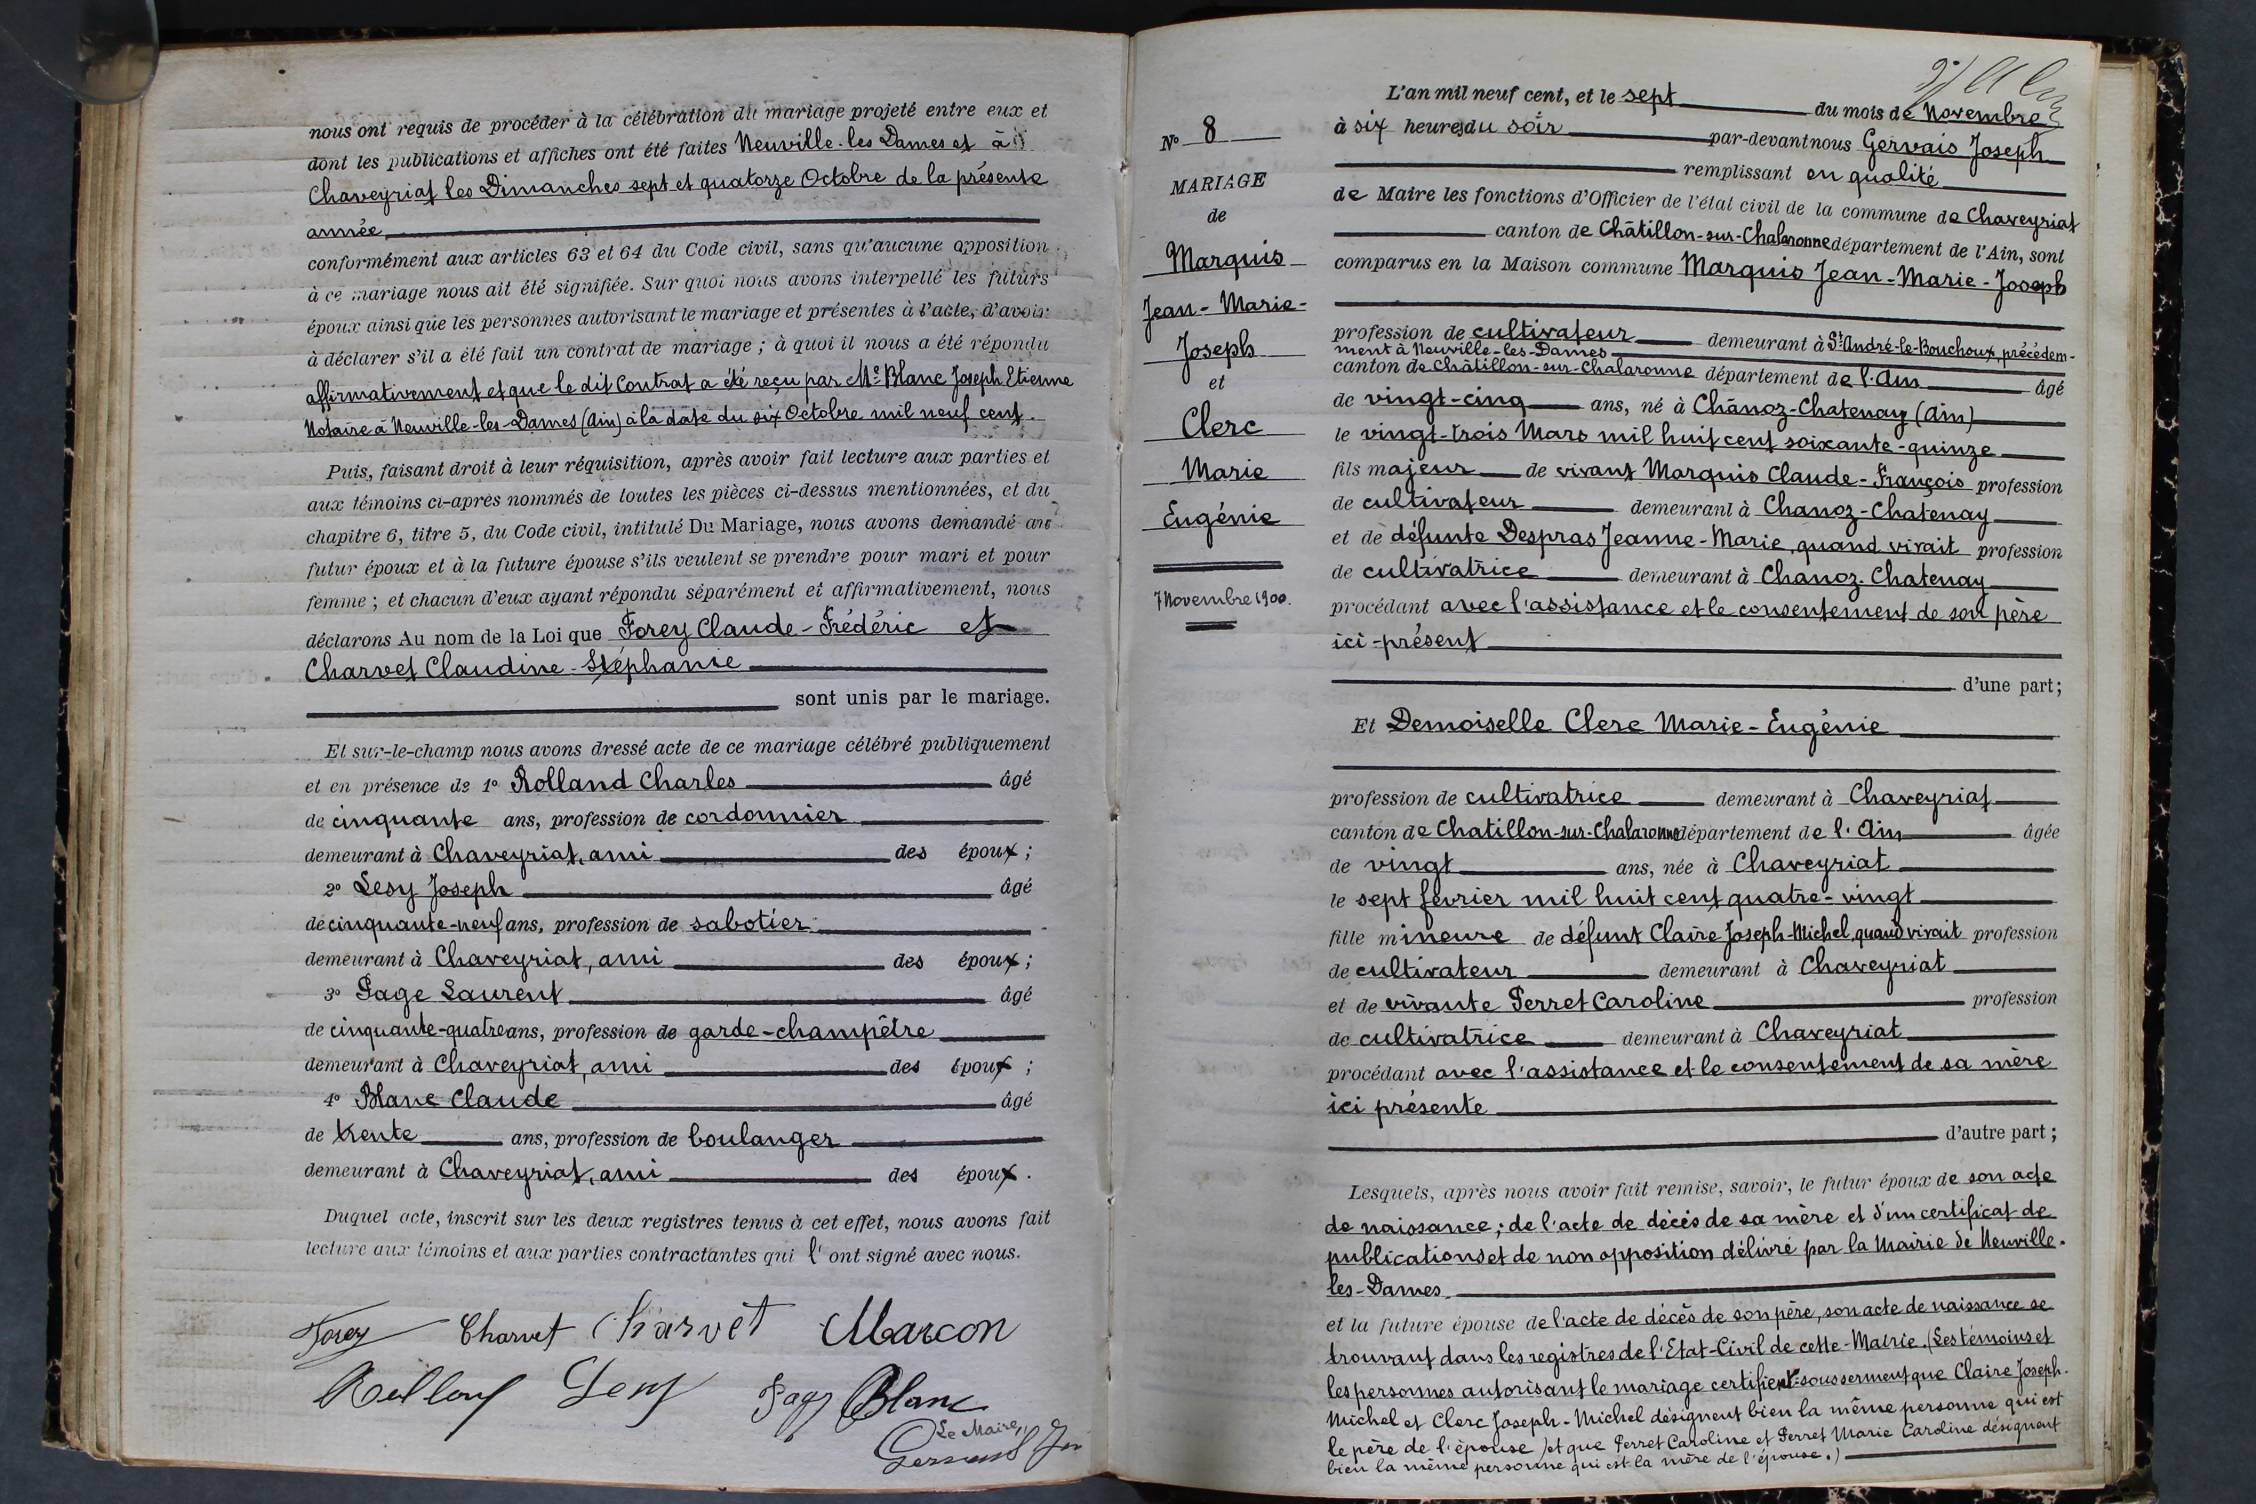 nous ont requis de procéder à la célébration du mariage projeté entre eux et
dont les publications et affiches ont été faites Neuville-les-Dames et à
Chaveyriat les Dimanches sept et quatorze Octobre de la présente
année
conformément aux articles 63 et 64 du Code civil, sans qu'aucune opposition
à ce mariage nous ait été signifiée. Sur quoi nous avons interpellé les futurs
époux ainsi que les personnes autorisant le mariage et présentes à l'acte, d'avoir
à déclarer s'il a été fait un contrat de mariage ; à quoi il nous a été répondu
affirmativement et que le dit Contrat a été reçu par Me Blanc Joseph Etienne
Notaire à Neuville-les-Dames (Ain) à la date du six Octobre mil neuf cent.
Puis, faisant droit à leur réquisition, après avoir fait lecture aux parties et
aux témoins ci-après nommés de toutes les pièces ci-dessus mentionnées, et du
chapitre 6, titre 5, du Code civil, intitulé Du Mariage, nous avons demandé au
futur époux et à la future épouse s'ils veulent se prendre pour mari et pour
femme ; et chacun d'eux ayant répondu séparément et affirmativement, nous
déclarons Au nom de la Loi que Forey Claude-Frédéric et
Charvet Claudine-Stéphanie
sont unis par le mariage.
Et sur-le-champ nous avons dressé acte de ce mariage célébré publiquement
et en présence de 1° Rolland Charles âgé
de cinquante ans, profession de cordonnier
demeurant à Chaveyriat, ami des époux ;
2° Lesy Joseph âgé
de cinquante-neuf ans, profession de sabotier
demeurant à Chaveyriat, ami des époux ;
3° Page Laurent âgé
de cinquante-quatre ans, profession de garde-champêtre
demeurant à Chaveyriat, ami des époux ;
4° Blanc Claude âgé
de trente ans, profession de boulanger
demeurant à Chaveyriat, ami des époux.
Duquel acte, inscrit sur les deux registres tenus à cet effet, nous avons fait
lecture aux témoins et aux parties contractantes qui l'ont signé avec nous.
Forey Charvet Charvet Marcon
Rolland Lesy Page Blanc
Le Maire,
Gervais
N° 8
MARIAGE
de
Marquis
Jean-Marie-
Joseph
et
Clerc
Marie
Eugénie
7 Novembre 1900.
L'an mil neuf cent, et le sept du mois de Novembre
à six heures du soir par-devant nous Gervais Joseph
remplissant en qualité
de Maire les fonctions d'Officier de l'état civil de la commune de Chaveyriat
canton de Châtillon-sur-Chalaronne département de l'Ain, sont
comparus en la Maison commune Marquis Jean-Marie-Joseph
profession de cultivateur demeurant à St-André-le-Bouchoux, précédem-
ment à Neuville-les-Dames
canton de Châtillon-sur-Chalaronne département de l'Ain âgé
de vingt-cinq ans, né à Chânoz-Chatenay (Ain)
le vingt-trois Mars mil huit cent soixante-quinze
fils majeur de vivant Marquis Claude-François profession
de cultivateur demeurant à Chanoz-Chatenay
et de défunte Despras Jeanne-Marie, quand vivait profession
de cultivatrice demeurant à Chanoz-Chatenay
procédant avec l'assistance et le consentement de son père
ici-présent
d'une part;
Et Demoiselle Clerc Marie-Eugénie
profession de cultivatrice demeurant à Chaveyriat
canton de Chatillon-sur-Chalaronne département de l'Ain âgée
de vingt ans, née à Chaveyriat
le sept février mil huit cent quatre-vingt
fille mineure de défunt Claire Joseph-Michel, quand vivait profession
de cultivateur demeurant à Chaveyriat
et de vivante Perret Caroline profession
de cultivatrice demeurant à Chaveyriat
procédant avec l'assistance et le consentement de sa mère
ici présente
d'autre part ;
Lesquels, après nous avoir fait remise, savoir, le futur époux de son acte
de naissance ; de l'acte de décès de sa mère et d'un certificat de
publications et de non opposition délivré par la Mairie de Neuville-
les-Dames
et la future épouse de l'acte de décès de son père, son acte de naissance se
trouvant dans les registres de l'Etat-Civil de cette Mairie. (Les témoins et
les personnes autorisant le mariage certifient sous serment que Claire Joseph-
Michel et Clerc Joseph-Michel désignent bien la même personne qui est
le père de l'épouse) et que Perret Caroline et Perret Marie Caroline désignent
bien la même personne qui est la mère de l'épouse.)